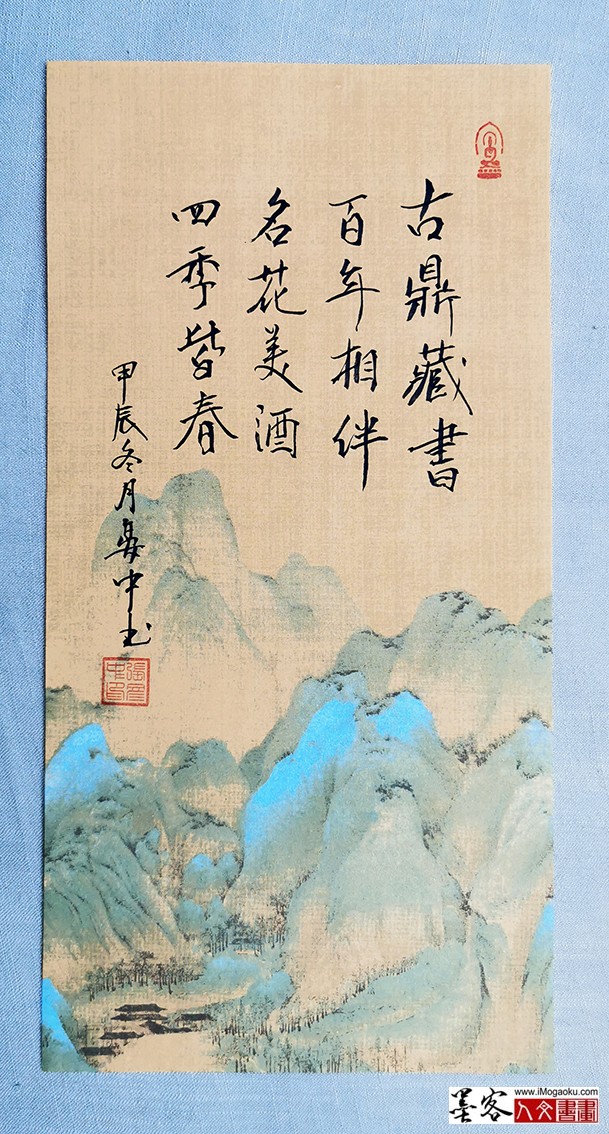 古鼎藏书
百年相伴
名花美酒
四季皆春
甲辰冬月
中书
www.iMogaoku.com
墨客
人文書畫